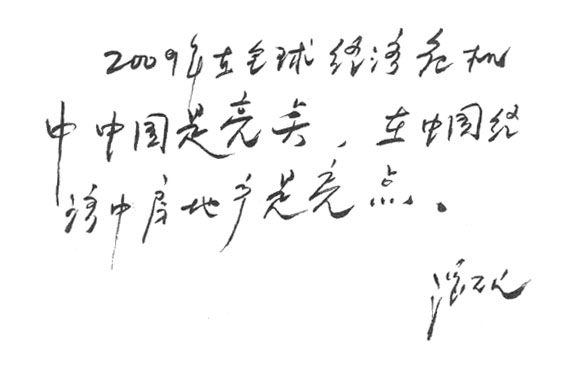 2009年在全球经济危机
中中国是亮点，在中国经
济中房地产是亮点。